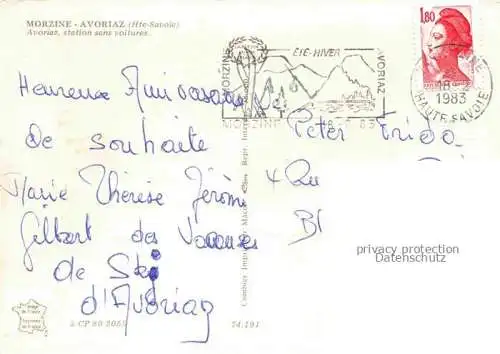 MORZINE - AVORIAZ (Hte-Savoie)
Avoriaz, station sans voitures.
1,80
MORZINE
ÉTÉ-HIVER
AVORIAZ
MORZINE
18
1983
HAUTE SAVOIE
Heureuse Anniversaire
de souhaite
Marie Thérèse Jérôme
Gilbert des Vacances
de Ski
d'Avoriaz
Peter
4 Ru
Bl
privacy protection
Datenschutz
Combier Imp. Mâcon
CP 80 2055
74.191